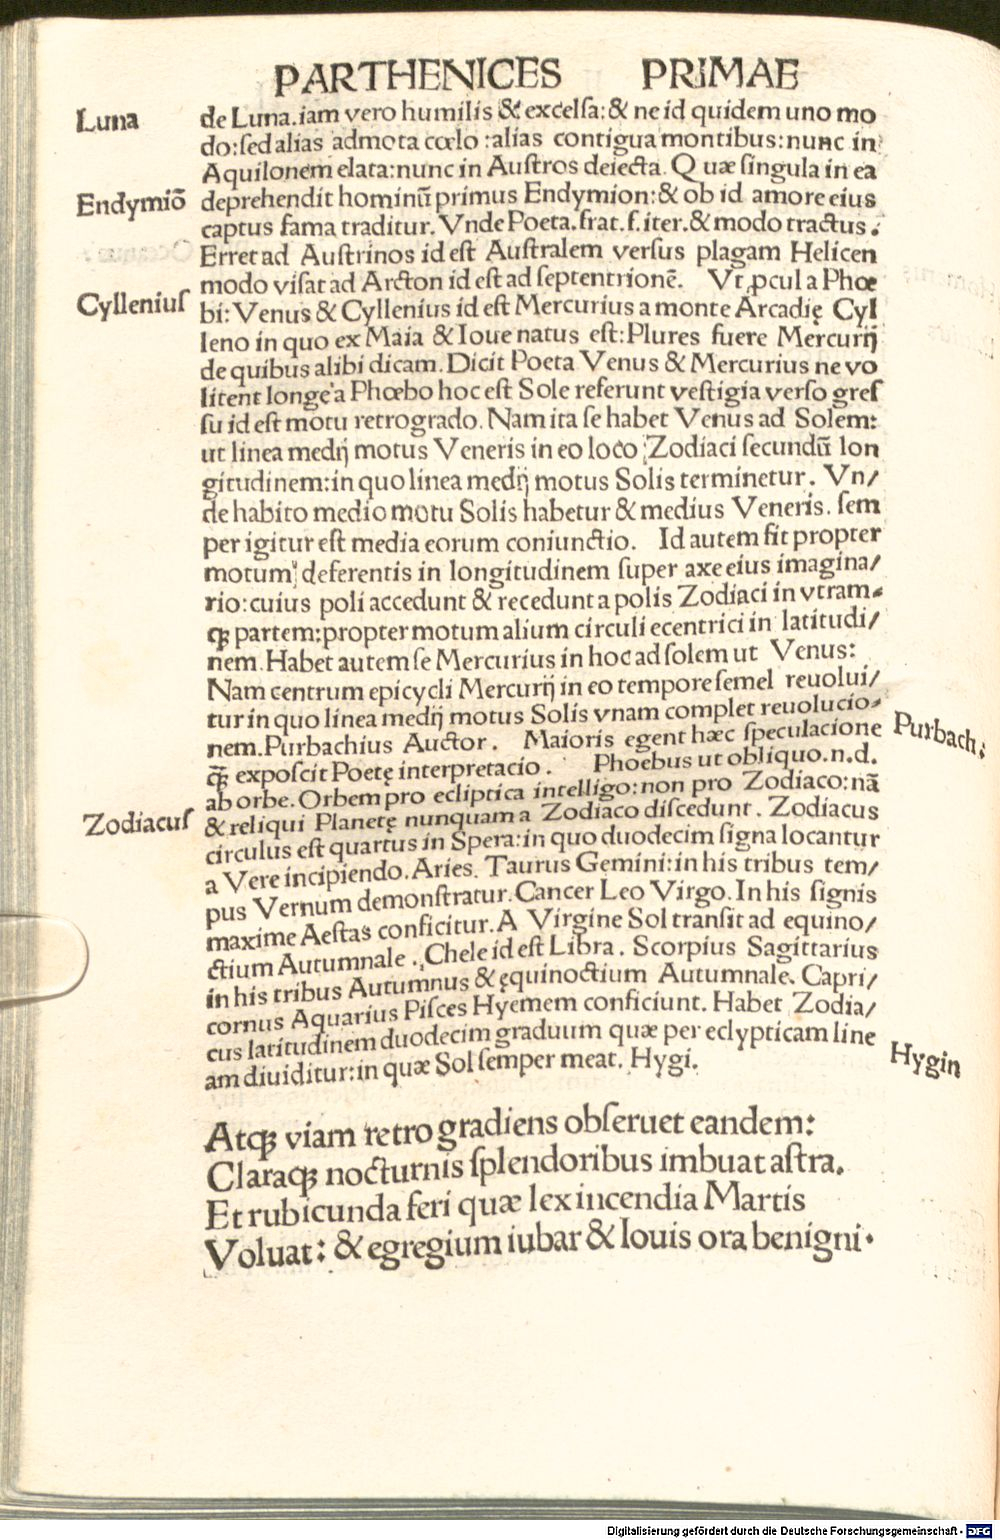 PARTHENICES PRIMAE
Luna
de Luna.iam vero humilis & excelſa:& ne id quidem uno mo
do:ſed alias admota cœlo :alias contigua montibus:nunc in
Aquilonem elata:nunc in Auſtros deiecta. Quæ ſingula in ea
Endymiõ
deprehendit hominũ primus Endymion:& ob id amore eius
captus fama traditur. Vnde Poeta.frat.ſ.iter.& modo tractus.
Erret ad Auſtrinos id eſt Auſtralem verſus plagam Helicen
modo viſat ad Arcton id eſt ad ſeptentrionẽ. Vt ꝓcul a Phœ
Cylleniuſ
bi: Venus & Cyllenius id eſt Mercurius a monte Arcadię Cyl
leno in quo ex Maia & Ioue natus eſt:Plures fuere Mercurij
de quibus alibi dicam. Dicit Poeta Venus & Mercurius ne vo
litent longe a Phœbo hoc eſt Sole referunt veſtigia verſo greſ
ſu id eſt motu retrogrado. Nam ita ſe habet Venus ad Solem:
ut linea medij motus Veneris in eo loco Zodiaci ſecundũ lon
gitudinem:in quo linea medij motus Solis terminetur. Vn/
de habito medio motu Solis habetur & medius Veneris. ſem
per igitur eſt media eorum coniunctio. Id autem fit propter
motum deferentis in longitudinem ſuper axe eius imagina/
rio:cuius poli accedunt & recedunt a polis Zodiaci in vtram-
qꝫ partem:propter motum alium circuli ecentrici in latitudi/
nem.Habet autem ſe Mercurius in hoc ad ſolem ut Venus:
Nam centrum epicycli Mercurij in eo tempore ſemel reuolui/
tur in quo linea medij motus Solis vnam complet reuolucio-
nem.Purbachius Auctor. Maioris egent hæc ſpeculacione
Purbach:
qꝫ̃ expoſcit Poetę interpretacio. Phoebus ut obliquo.n.d.
ab orbe. Orbem pro ecliptica intelligo:non pro Zodiaco:nã
Zodiacuſ
& reliqui Planetę nunquam a Zodiaco diſcedunt. Zodiacus
circulus eſt quartus in Spera:in quo duodecim signa locantur
a Vere incipiendo.Aries. Taurus Gemini:in his tribus tem/
pus Vernum demonſtratur.Cancer Leo Virgo.In his ſignis
maxime Aeſtas conficitur.A Virgine Sol tranſit ad equino/
ctium Autumnale. Chele id eſt Libra. Scorpius Sagittarius
in his tribus Autumnus & ęquinoctium Autumnale. Capri/
cornus Aquarius Piſces Hyemem conficiunt. Habet Zodia/
cus latitudinem duodecim graduum quæ per eclypticam line
Hygin
am diuiditur:in quæ Sol ſemper meat. Hygi.
Atqꝫ viam retro gradiens obſeruet eandem:
Claraqꝫ nocturnis ſplendoribus imbuat aſtra.
Et rubicunda feri quæ lex incendia Martis
Voluat: & egregium iubar & Iouis ora benigni.
Digitalisierung gefördert durch die Deutsche Forschungsgemeinschaft - DFG